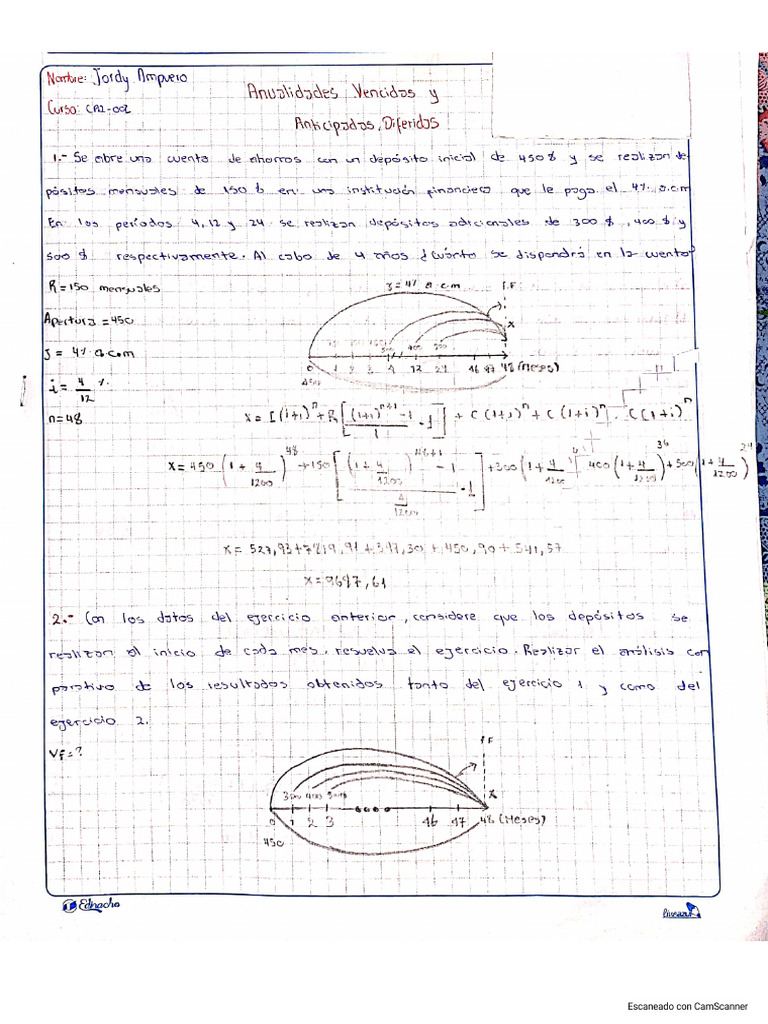 Nombre: Jordy Ampuero
Anualidades Vencidas y
Curso: CA2-002
Anticipadas, Diferidas
1.- Se abre una cuenta de ahorros con un depósito inicial de 450$ y se realizan de
pósitos mensuales de 150 $ en una institución financiera que le paga el 4% a.c.m
En los períodos 4, 12 y 24 se realizan depósitos adicionales de 300 $, 400 $ y
500 $ respectivamente. Al cabo de 4 años ¿Cuánto se dispondrá en la cuenta?
R = 150 mensuales
J = 4% a.c.m
f.F
Apertura = 450
X
J = 4% a.c.m
300 400 500
0 1 2 3 4 12 24 46 47 48 (Meses)
450
i = 4/12 %
n = 48
x = I(1+i)^n + R[((1+i)^n+1 - 1)/i - 1] + C(1+i)^n + C(1+i)^n . C(1+i)^n
x = 450(1 + 4/1200)^48 + 150[((1 + 4/1200)^46+1 - 1)/(4/1200) - 1] + 300(1 + 4/1200) 400(1 + 4/1200)^36 + 500(1 + 4/1200)^24
x = 527,93 + 7819,91 + 347,30 + 450,90 + 541,57
x = 9687,61
2.- Con los datos del ejercicio anterior, considere que los depósitos se
realizan al inicio de cada mes, resuelva el ejercicio. Realizar el análisis com
parativo de los resultados obtenidos tanto del ejercicio 1 y como del
ejercicio 2.
Vf = ?
f.F
300 400 500
X
0 1 2 3 46 47 48 (Meses)
450
Ednacho
Escaneado con CamScanner